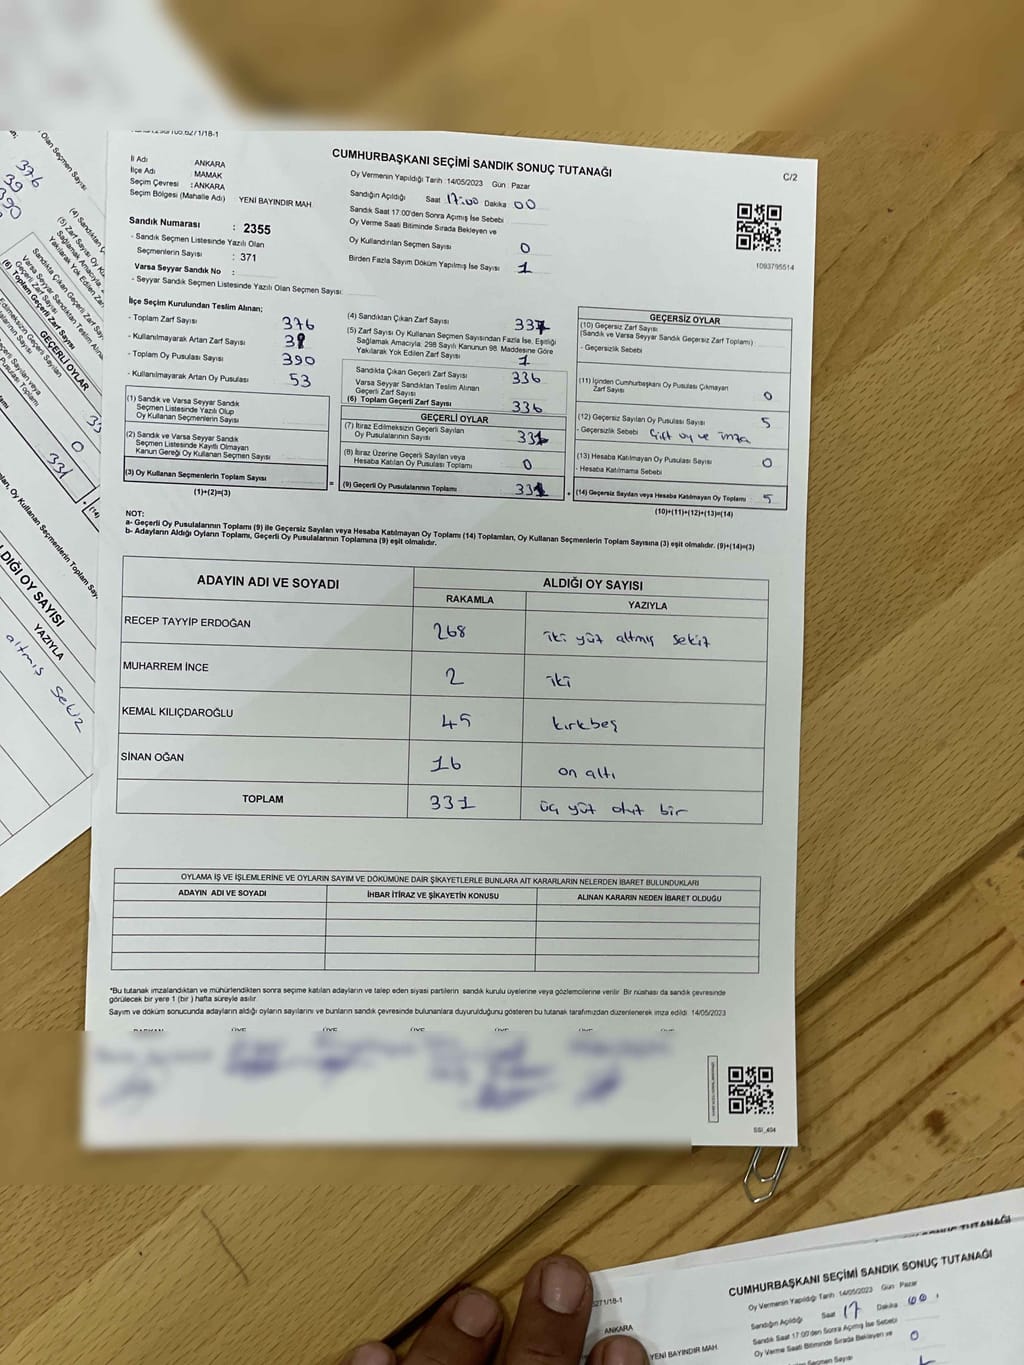 CUMHURBAŞKANI SEÇİMİ SANDIK SONUÇ TUTANAĞI
C/2
İl Adı ANKARA
İlçe Adı : MAMAK
Seçim Çevresi : ANKARA
Seçim Bölgesi (Mahalle Adı) YENİ BAYINDIR MAH.
Oy Vermenin Yapıldığı Tarih : 14/05/2023 Gün : Pazar
Sandığın Açıldığı Saat 17:00 Dakika 00
Sandık Saat 17:00'den Sonra Açımış İse Sebebi
Oy Verme Saati Bitiminde Sırada Bekleyen ve
Oy Kullandırılan Seçmen Sayısı 0
Birden Fazla Sayım Döküm Yapılmış İse Sayısı 1
1093795514
Sandık Numarası : 2355
- Sandık Seçmen Listesinde Yazılı Olan
Seçmenlerin Sayısı : 371
Varsa Seyyar Sandık No :
- Seyyar Sandık Seçmen Listesinde Yazılı Olan Seçmen Sayısı:
İlçe Seçim Kurulundan Teslim Alınan;
- Toplam Zarf Sayısı 376
- Kullanılmayarak Artan Zarf Sayısı
- Toplam Oy Pusulası Sayısı 390
- Kullanılmayarak Artan Oy Pusulası 53
(1) Sandık ve Varsa Seyyar Sandık
Seçmen Listesinde Yazılı Olup
Oy Kullanan Seçmenlerin Sayısı
(2) Sandık ve Varsa Seyyar Sandık
Seçmen Listesinde Kayıtlı Olmayan
Kanun Gereği Oy Kullanan Seçmen Sayısı
(3) Oy Kullanan Seçmenlerin Toplam Sayısı
=
(1)+(2)=(3)
(4) Sandıktan Çıkan Zarf Sayısı 337
(5) Zarf Sayısı Oy Kullanan Seçmen Sayısından Fazla İse, Eşitliği
Sağlamak Amacıyla, 298 Sayılı Kanunun 98. Maddesine Göre
Yakılarak Yok Edilen Zarf Sayısı 1
Sandıkta Çıkan Geçerli Zarf Sayısı 336
Varsa Seyyar Sandıktan Teslim Alınan
Geçerli Zarf Sayısı
(6) Toplam Geçerli Zarf Sayısı 336
GEÇERLİ OYLAR
(7) İtiraz Edilmeksizin Geçerli Sayılan
Oy Pusulalarının Sayısı 331
(8) İtiraz Üzerine Geçerli Sayılan veya
Hesaba Katılan Oy Pusulası Toplamı 0
(9) Geçerli Oy Pusulalarının Toplamı 331
+
GEÇERSİZ OYLAR
(10) Geçersiz Zarf Sayısı
(Sandık ve Varsa Seyyar Sandık Geçersiz Zarf Toplamı)
- Geçersizlik Sebebi
(11) İçinden Cumhurbaşkanı Oy Pusulası Çıkmayan
Zarf Sayısı 0
(12) Geçersiz Sayılan Oy Pusulası Sayısı 5
- Geçersizlik Sebebi Çift oy ve imza
(13) Hesaba Katılmayan Oy Pusulası Sayısı 0
- Hesaba Katılmama Sebebi
(14) Geçersiz Sayılan veya Hesaba Katılmayan Oy Toplamı 5
(10)+(11)+(12)+(13)=(14)
NOT:
a- Geçerli Oy Pusulalarının Toplamı (9) ile Geçersiz Sayılan veya Hesaba Katılmayan Oy Toplamı (14) Toplamları, Oy Kullanan Seçmenlerin Toplam Sayısına (3) eşit olmalıdır. (9)+(14)=(3)
b- Adayların Aldığı Oyların Toplamı, Geçerli Oy Pusulalarının Toplamına (9) eşit olmalıdır.
ADAYIN ADI VE SOYADI ALDIĞI OY SAYISI
RAKAMLA YAZIYLA
RECEP TAYYİP ERDOĞAN 268 iki yüz altmış sekiz
MUHARREM İNCE 2 iki
KEMAL KILIÇDAROĞLU 45 kırkbeş
SİNAN OĞAN 16 on altı
TOPLAM 331 üç yüz otuz bir
OYLAMA İŞ VE İŞLEMLERİNE VE OYLARIN SAYIM VE DÖKÜMÜNE DAİR ŞİKAYETLERLE BUNLARA AİT KARARLARIN NELERDEN İBARET BULUNDUKLARI
ADAYIN ADI VE SOYADI İHBAR İTİRAZ VE ŞİKAYETİN KONUSU ALINAN KARARIN NEDEN İBARET OLDUĞU
*Bu tutanak imzalandıktan ve mühürlendikten sonra seçime katılan adayların ve talep eden siyasi partilerin sandık kurulu üyelerine veya gözlemcilerine verilir. Bir nüshası da sandık çevresinde
görülecek bir yere 1 (bir ) hafta süreyle asılır.
Sayım ve döküm sonucunda adayların aldığı oyların sayılarını ve bunların sandık çevresinde bulunanlara duyurulduğunu gösteren bu tutanak tarafımızdan düzenlenerek imza edildi. 14/05/2023
SSI_404
376
39
390
(4) Sandıktan Ç
(5) Zarf Sayısı Oy K
Sağlamak Amacıyla,
Yakılarak Yok Edilen Zarf
Sandıkta Çıkan Geçerli Zarf
Varsa Seyyar Sandıktan Teslim Alınan
Geçerli Zarf Sayısı
(6) Toplam Geçerli Zarf Sayısı
GEÇERLİ OYLAR
0
331
(14)
LDIĞI OY SAYISI
YAZIYLA
altmış sekiz
CUMHURBAŞKANI SEÇİMİ SANDIK SONUÇ TUTANAĞI
Oy Vermenin Yapıldığı Tarih : 14/05/2023 Gün : Pazar
Sandığın Açıldığı Saat 17 Dakika 00
Sandık Saat 17:00'den Sonra Açımış İse Sebebi
Oy Verme Saati Bitiminde Sırada Bekleyen ve
0
6271/18-1
ANKARA
YENİ BAYINDIR MAH.